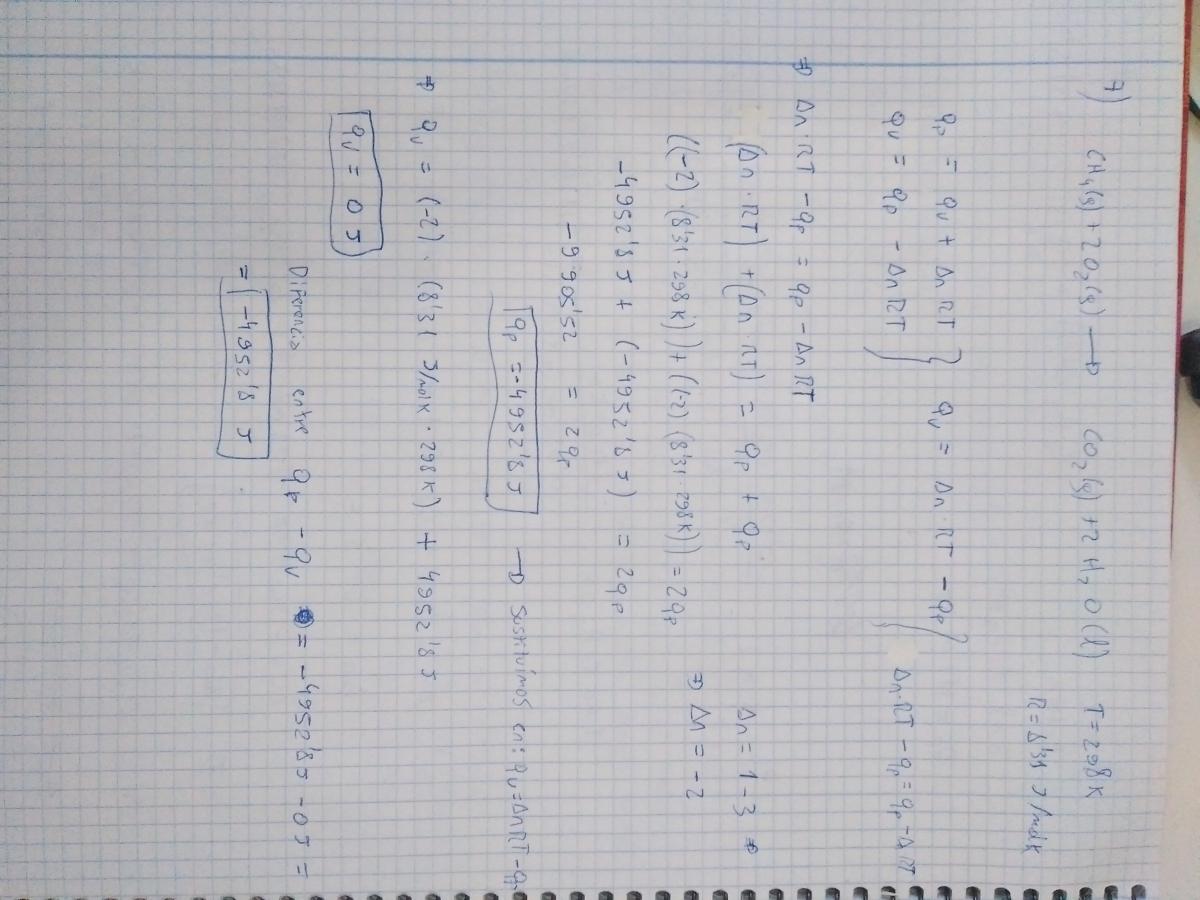 7) CH₄(g) + 2O₂(g) → CO₂(g) + 2 H₂O(l) T = 298 K
R = 8'31 J/molK
qp = qv + Δn RT
qv = qp - Δn RT
qv = Δn·RT - qp
Δn·RT - qp = qp - Δn RT
⇒ Δn·RT - qp = qp - Δn RT
(Δn·RT) + (Δn RT) = qp + qp
Δn = 1 - 3 ⇒
((-2)·(8'31·298K)) + ((-2)(8'31·298K)) = 2qp
⇒ Δn = -2
-4952'8 J + (-4952'8 J) = 2qp
-9905'52 = 2qp
qp = -4952'8 J → Sustituimos en: qv = Δn RT - qp
⇒ qv = (-2)·(8'31 J/molK·298K) + 4952'8 J
qv = 0 J
Diferencia entre qp - qv = -4952'8 J - 0 J =
= -4952'8 J